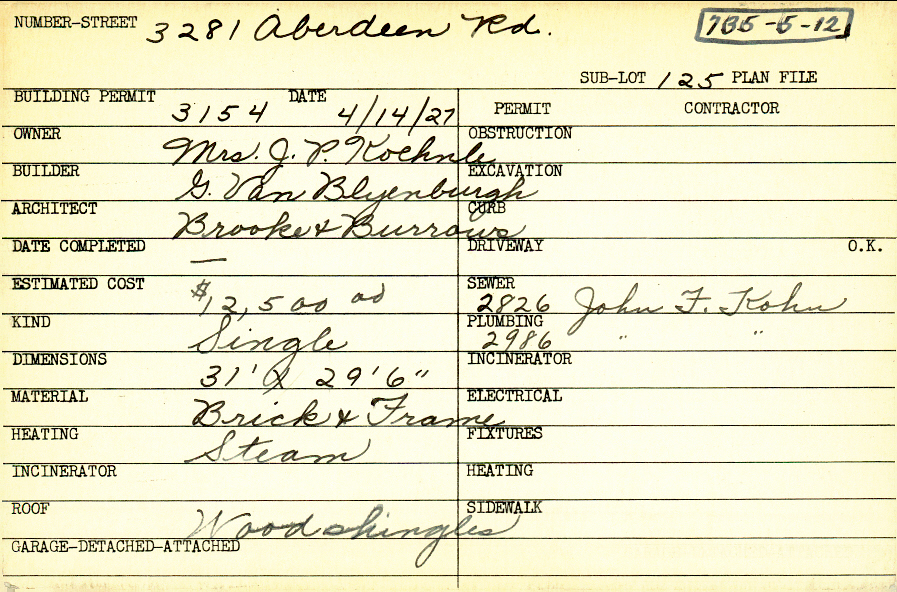 NUMBER-STREET 3281 Aberdeen Rd. 735-5-12
SUB-LOT 125 PLAN FILE
BUILDING PERMIT 3154 DATE 4/14/27 PERMIT CONTRACTOR
OWNER Mrs. J. P. Koehnle OBSTRUCTION
BUILDER G. Van Blyenburgh EXCAVATION
ARCHITECT Brooke & Burrows CURB
DATE COMPLETED — DRIVEWAY O.K.
ESTIMATED COST $12,500 00 SEWER 2826 John F. Kohn
KIND Single PLUMBING 2986 " "
DIMENSIONS 31' X 29'6" INCINERATOR
MATERIAL Brick & Frame ELECTRICAL
HEATING Steam FIXTURES
INCINERATOR HEATING
ROOF Wood shingles SIDEWALK
GARAGE-DETACHED-ATTACHED